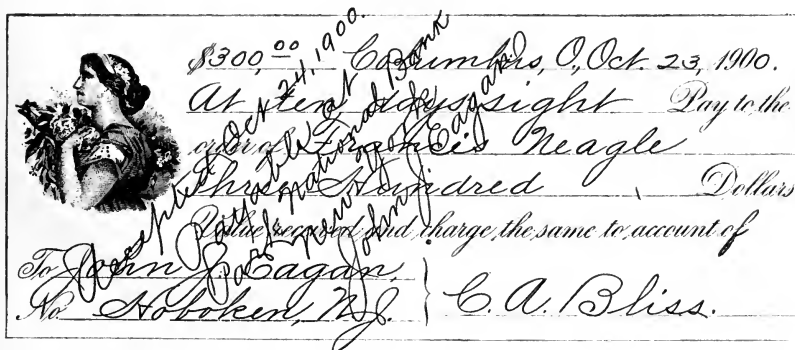 $300.00 Columbus, O., Oct. 23, 1900.
At ten days sight Pay to the
order of Francis Neagle
Three Hundred Dollars
Value received and charge the same to account of
To John J. Eagan,
No. Hoboken, N.J. } C. A. Bliss.
Accepted Oct 24, 1900.
Payable at
Park National Bank
New York
John J Eagan